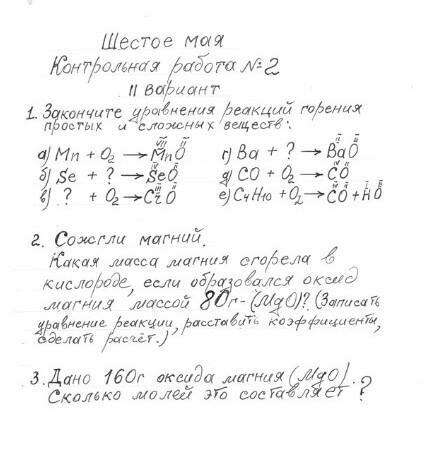 Шестое мая
Контрольная работа №2
II вариант
1. Закончите уравнения реакций горения
простых и сложных веществ:
а) Mn + O₂ → M̽nO г) Ba + ? → BaO
б) Se + ? → SeO д) CO + O₂ → CO
в) ? + O₂ → CrO е) C₄H₁₀ + O₂ → CO + HO
2. Сожгли магний.
Какая масса магния сгорела в
кислороде, если образовался оксид
магния массой 80г-(MgO)? (Записать
уравнение реакции, расставить коэффициенты,
сделать расчёт.)
3. Дано 160г оксида магния (MgO).
Сколько молей это составляет?